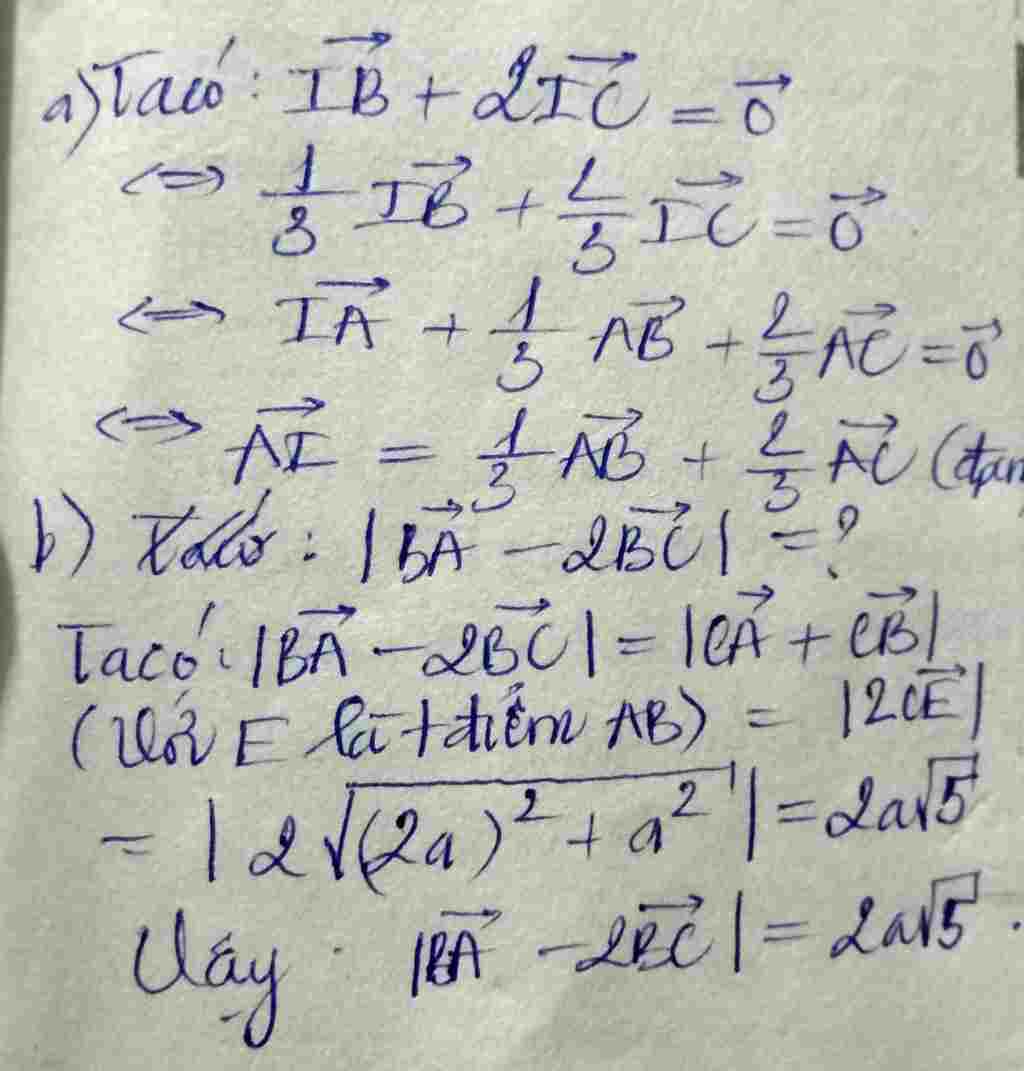 a) Ta có: $\overrightarrow{IB} + 2\overrightarrow{IC} = \overrightarrow{0}$
$\Leftrightarrow \frac{1}{3}\overrightarrow{IB} + \frac{2}{3}\overrightarrow{IC} = \overrightarrow{0}$
$\Leftrightarrow \overrightarrow{IA} + \frac{1}{3}\overrightarrow{AB} + \frac{2}{3}\overrightarrow{AC} = \overrightarrow{0}$
$\Leftrightarrow \overrightarrow{AI} = \frac{1}{3}\overrightarrow{AB} + \frac{2}{3}\overrightarrow{AC}$
b) : $|\overrightarrow{BA} - 2\overrightarrow{BC}| = ?$
Ta có: $|\overrightarrow{BA} - 2\overrightarrow{BC}| = |\overrightarrow{CA} + \overrightarrow{CB}|$
(Với E là t điểm AB) $= |2\overrightarrow{CE}|$
$= |2\sqrt{(2a)^2 + a^2}| = 2a\sqrt{5}$
Vậy $|\overrightarrow{BA} - 2\overrightarrow{BC}| = 2a\sqrt{5}$.